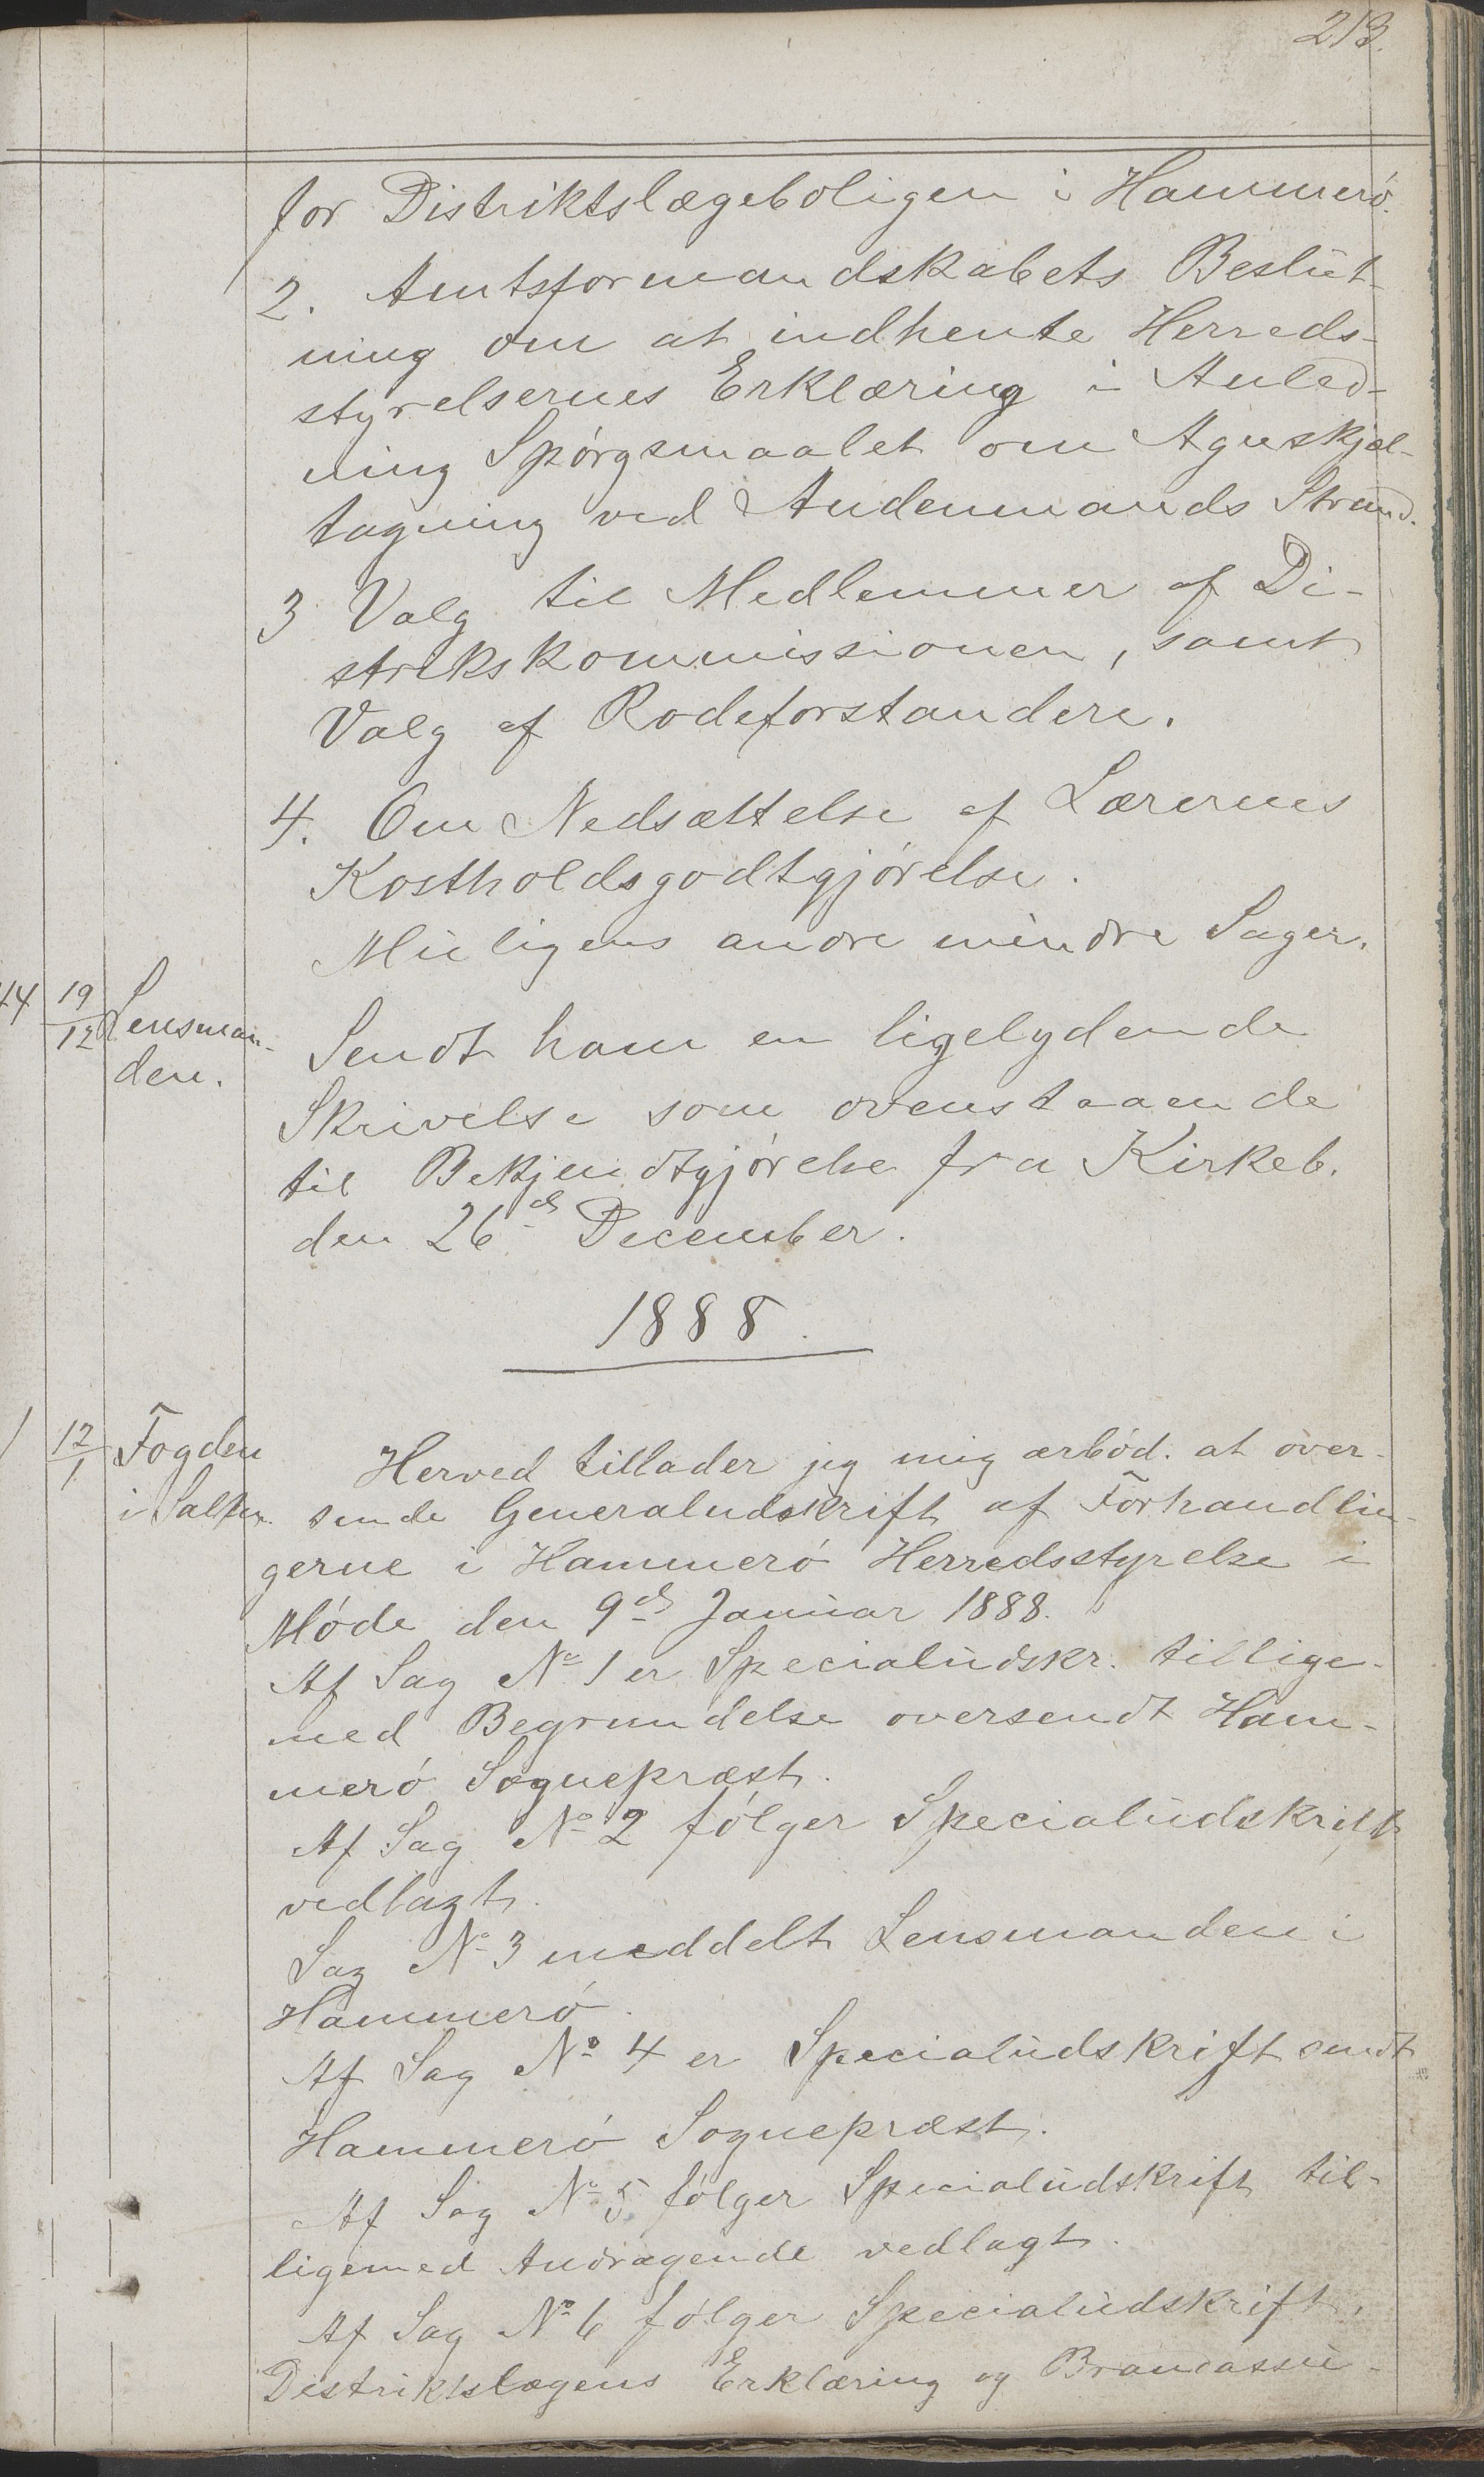 213.
for Distriktslægeboligen i Hammerö.
2. Amtsformandskabets Beslut-
ning om at indhente Herreds-
styrelsernes Erklæring i Anled-
ning Spörgsmaalet om Agnskjæl-
tagning ved Andenmands Strand.
3 Valg til Medlemmer af Di-
strikskommissionen, samt
Valg af Rodeforstandere.
4. Om Nedsættelse af Lærernes
Kostholdsgodtgjörelse.
Muligens andre mindre Sager.
44 19/12 Lensman-
den.
Sendt ham en ligelydende
Skrivelse som ovenstaaende
til Bekjendtgjörelse fra Kirkeb.
den 26de December.
1888.
1 12/1 Fogden
i Salten.
Herved tillader jeg mig ærböd. at over-
sende Generaludskrift af Forhandlin-
gerne i Hammerö Herredsstyrelse i
Möde den 9de Januar 1888.
Af Sag No 1 er Specialudskr. tillige-
med Begrundelse oversendt Ham-
merö Sognepræst.
Af Sag No 2 fölger Specialudskrift
vedlagt.
Sag No 3 meddelt Lensmanden i
Hammerö.
Af Sag No 4 er Specialudskrift sendt
Hammerö Sognepræst.
Af Sag No 5 fölger Specialudskrift til-
ligemed Andragende vedlagt.
Af Sag No 6 fölger Specialudskrift,
Distriktslægens Erklæring og Brandassu-